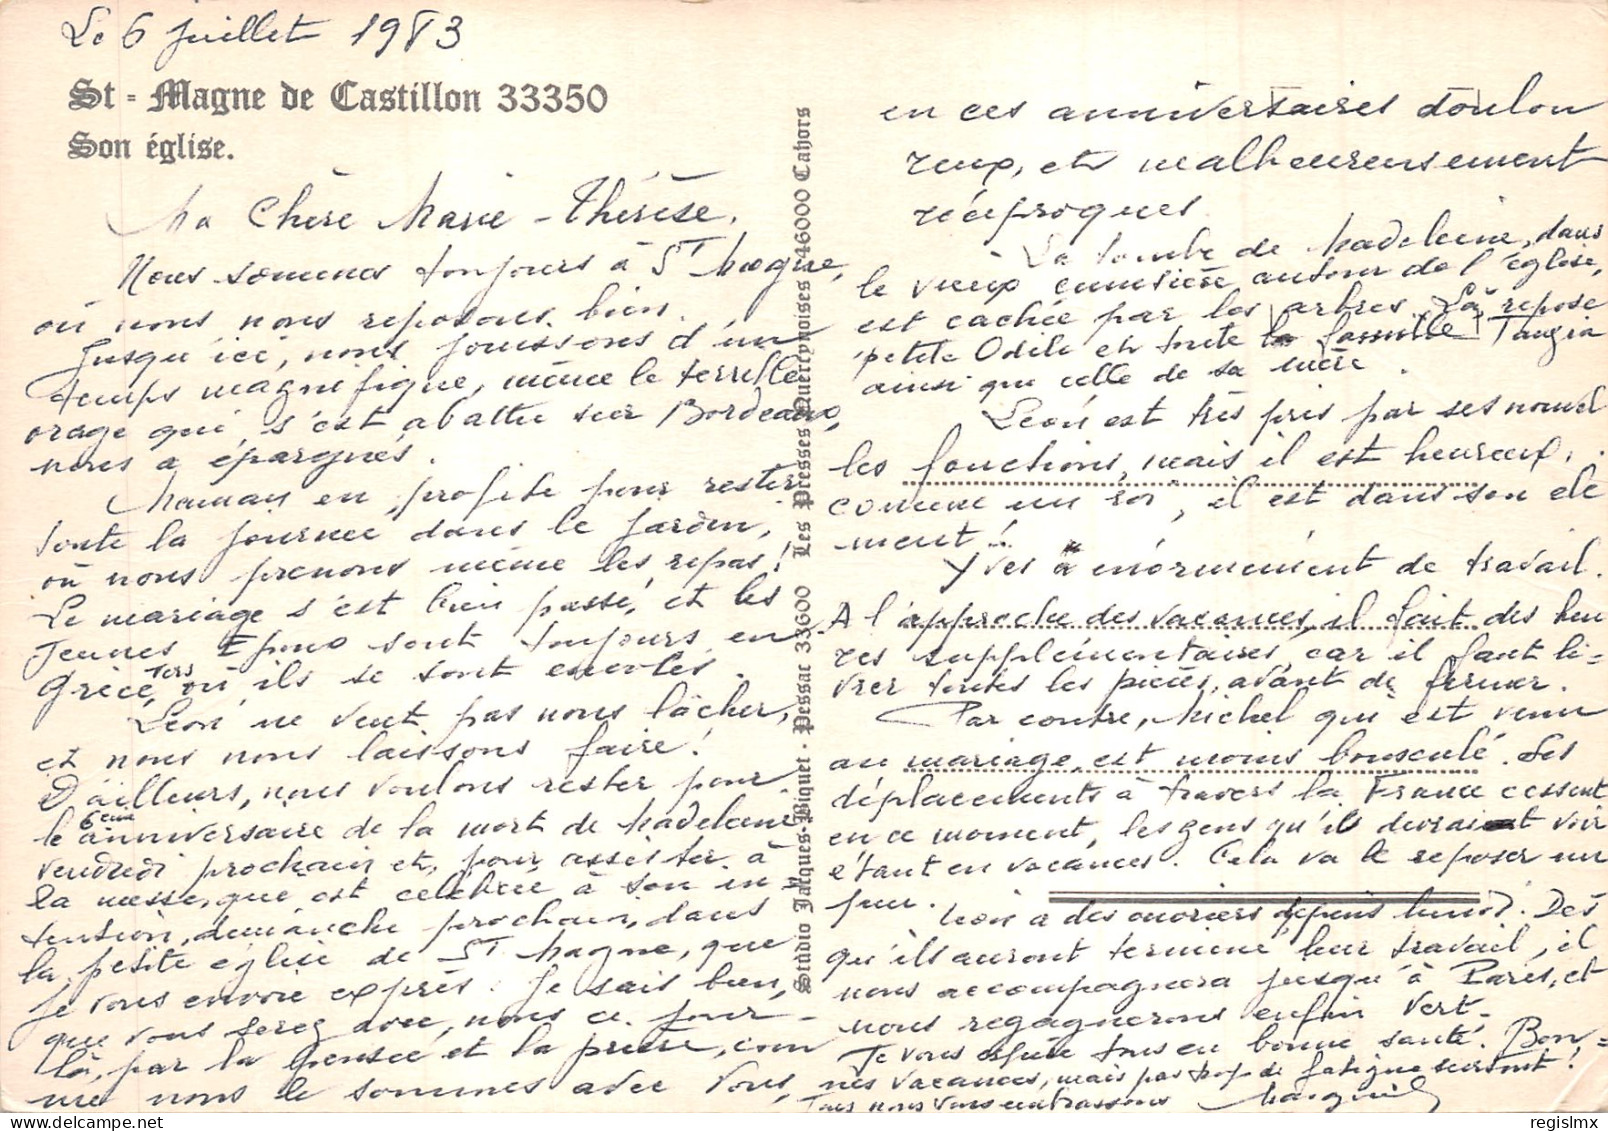 Le 6 juillet 1983
St - Magne de Castillon 33350
Son église.
Ma Chère Marie-Thérèse,
Nous sommes toujours à St Magne,
où nous nous reposons bien.
Jusqu'ici, nous jouissons d'un
temps magnifique, même le terrible
orage qui s'est abattu sur Bordeaux,
nous a épargnés.
Maman en profite pour rester
toute la journée dans le jardin,
où nous prenons même les repas!
Le mariage s'est bien passé, et les
jeunes Epoux sont toujours en
Grèce, vers où ils se sont envolés.
Léon ne veut pas nous lâcher,
et nous nous laissons faire!
D'ailleurs, nous voulons rester pour
le 6eme anniversaire de la mort de Madeleine
vendredi prochain et, pour assister à
la messe, que est célébrée à son in
tention, dimanche prochain, dans
la petite église de St Magne, que
je vous envoie exprès. Je sais bien,
que vous serez avec nous ce jour-
là, par la pensée et la prière, com
me nous le sommes avec vous,
en ces anniversaires doulou
reux, et malheureusement
réciproques.
La tombe de Madeleine, dans
le vieux cimetière autour de l'église,
est cachée par les arbres. Là, repose
petite Odile et toute la famille Tauzia
ainsi que celle de sa mère.
Léon est très pris par ses nouvel
les fonctions, mais il est heureux,
comme un roi, il est dans son élé
ment!
Yves a énormément de travail.
A l'approche des vacances, il fait des heu
res supplémentaires, car il faut li-
vrer toutes les pièces, avant de fermer.
Par contre, Michel qui est venu
au mariage, est moins bousculé. Les
déplacements à travers la France cessent
en ce moment, les gens qu'il devrait voir
étant en vacances. Cela va le reposer un
peu.
Léon a des ouvriers depuis lundi. Dès
qu'ils auront terminé leur travail, il
nous accompagnera jusqu'à Paris, et
nous regagnerons enfin Vert-
Je vous espère tous en bonne santé. Bon-
nes vacances, mais pas trop de fatigue surtout!
Tous nous vous embrassons
Studio Jacques-Biquet - Pessac 33600 Les Presses Quercynoises 46000 Cahors
www.delcampe.net
regislmx